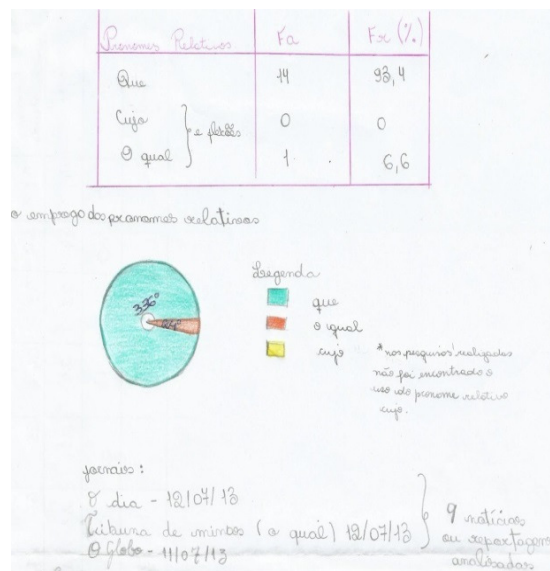 Pronomes Relativos Fa Fr (%)
Que 14 93,4
Cujo 0 0
e flexões
O qual 1 6,6
o emprego dos pronomes relativos
336°
Legenda
que
o qual
cujo
*nas pesquisas realizadas
não foi encontrado o
uso do pronome relativo
cujo.
jornais:
O dia - 12/07/13
Tribuna de minas (o qual) 12/07/13
O Globo - 11/07/13
9 notícias
ou reportagens
analisadas